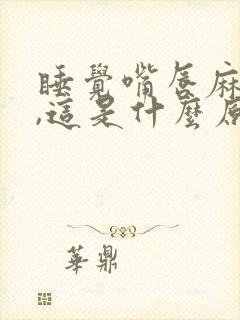 睡覺嘴唇麻
,這是什麼原
華鼎